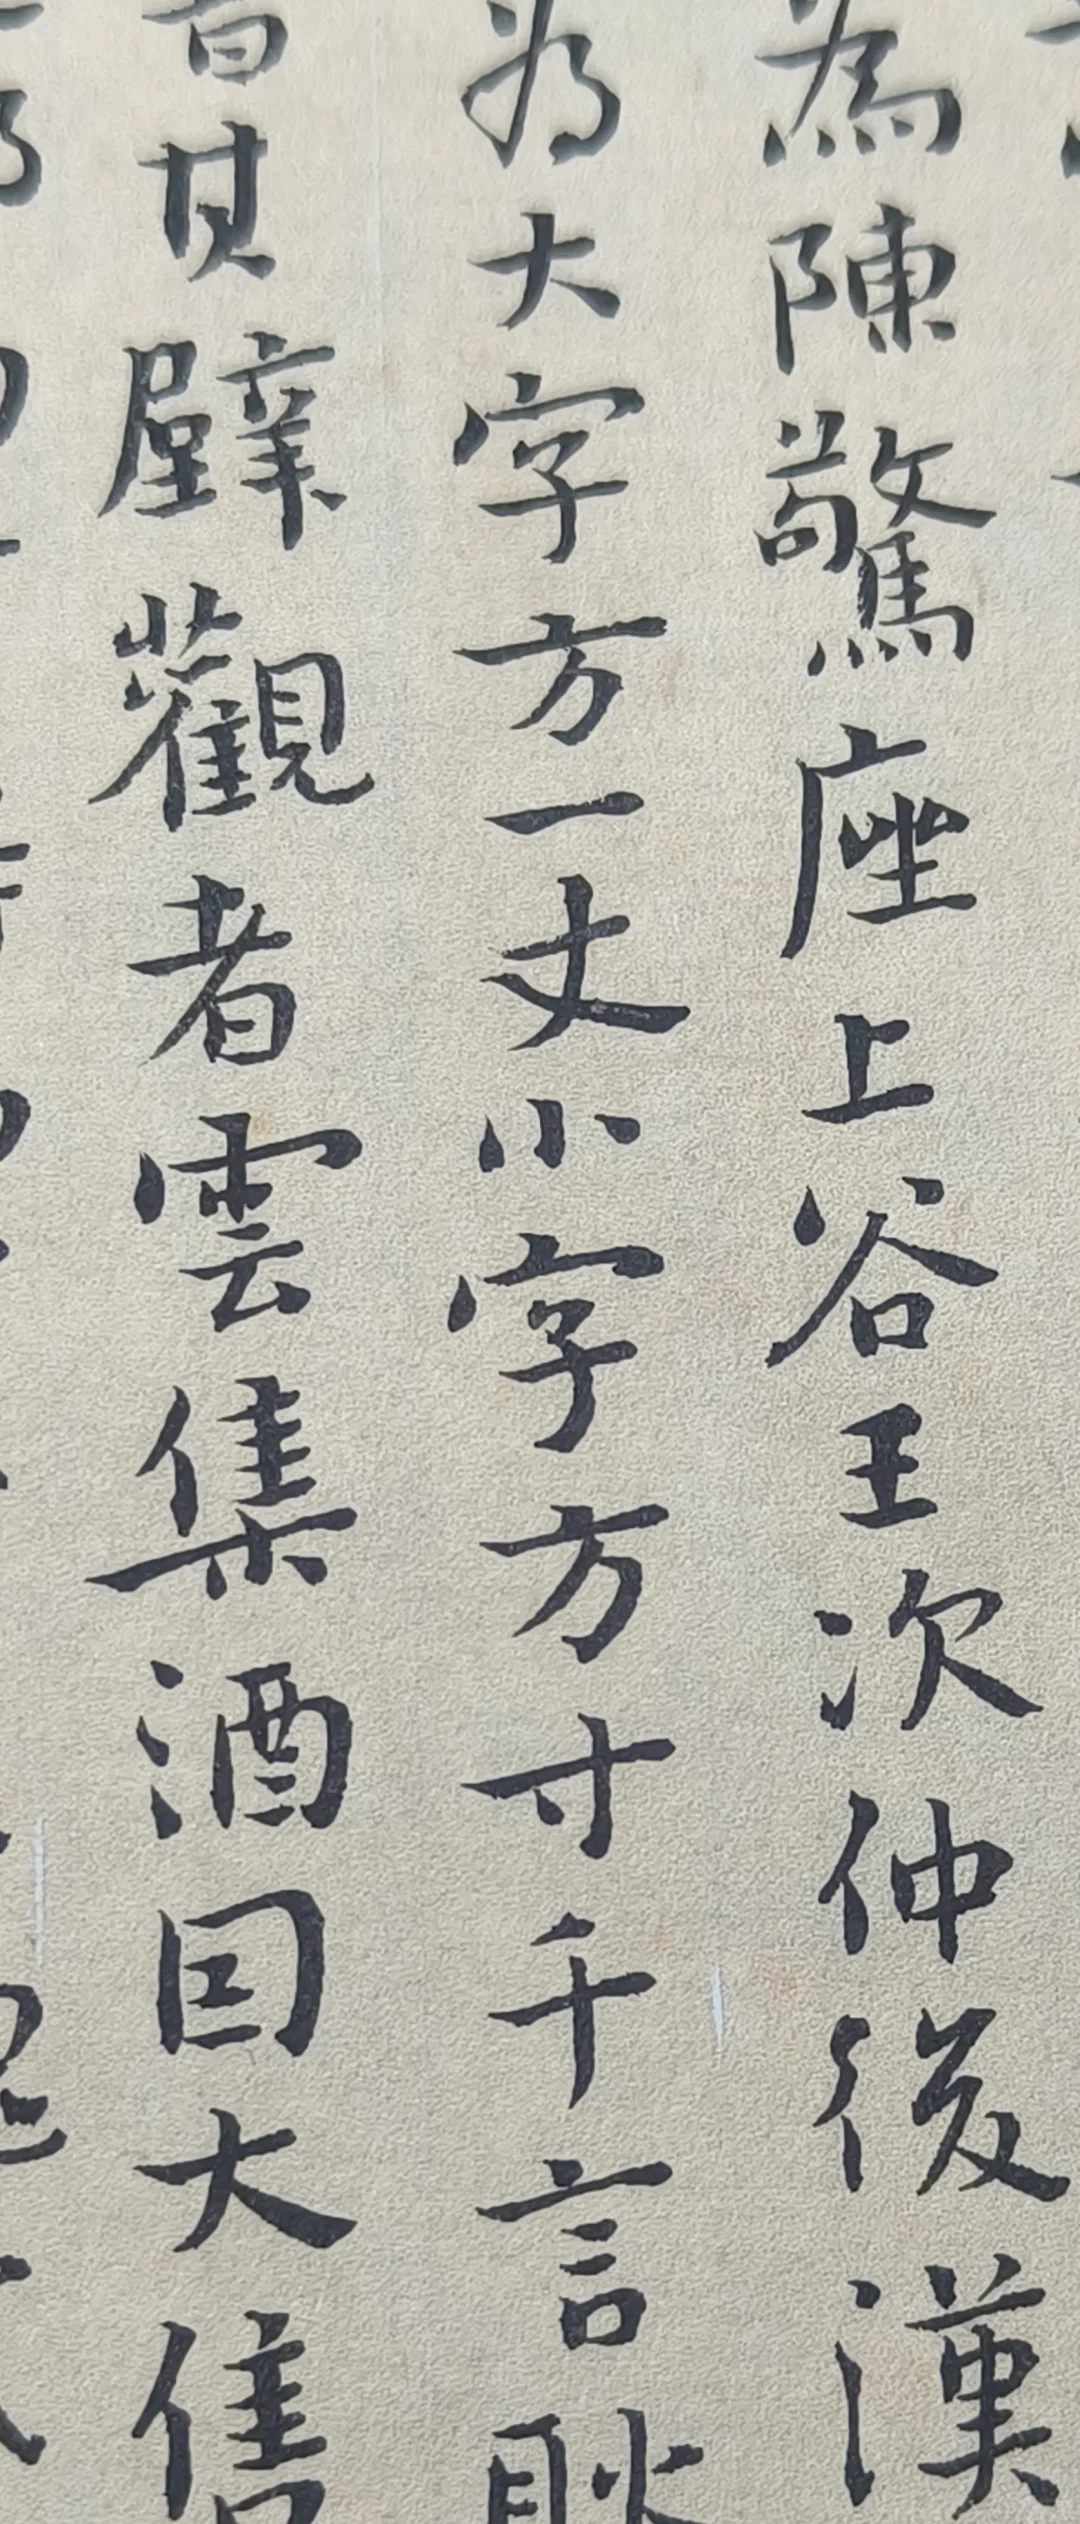 為陳驚座上谷王次仲後漢
为大字方一丈小字方寸千言耿
書其壁觀者雲集酒因大售